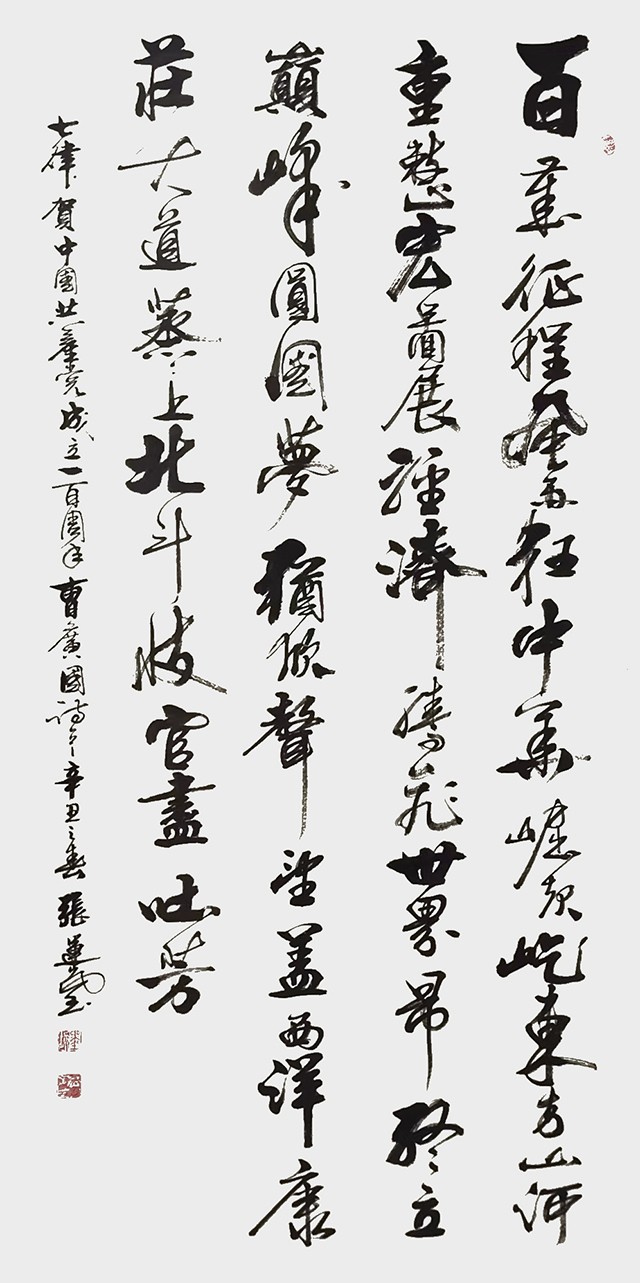 百征程發狂中華崛起屹東方山河
重整宏圖展經濟騰飛世界昂終立
巔峰圓國夢猶欣聲望盖西洋康
莊大道蒸〻上北斗盡吐芳
七律賀中國共產党成立一百周年曹廣國詩辛丑之春張蓮